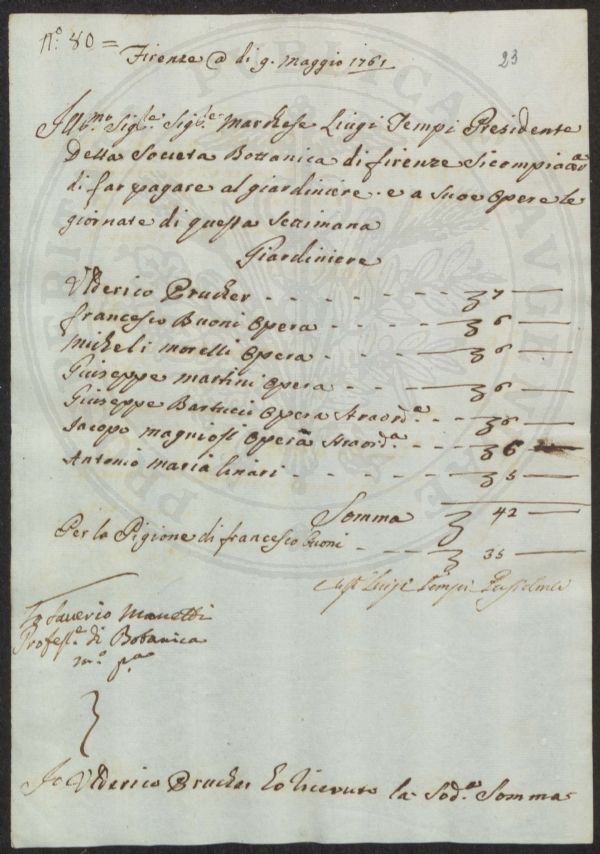 N.º 80 =
23
Firenze @ di 9. Maggio 1761
Ill.mo Sig.le Sig.le Marchese Luigi Tempi Presidente
Della Societa Bottanica di firenze Si compiacera
di far pagare al giardiniere e a Suoe Opere le
giornate di questa Settimana
Giardiniere
Vlderico Prucker - - - - - - - - 7 —
francesco Buoni Opera - - - - - 6 —
Micheli Morelli Opera - - - - 6 —
Giuseppe Martini Opera - - - 6 —
Giuseppe Bartucci Opera Straord.a - - 6 —
Jacopo Magniosi Opera Straord.a - - 6 —
Antonio Maria Linari - - - - - - 5 —
Somma 42 —
Per la Pigione di francesco Buoni - - - 35 —
Luigi Tempi Presidente
Saverio Manetti
Profess.e di Botanica
m.o p.a
Io Vlderico Prucker ho ricevuto la Sod.a Somma